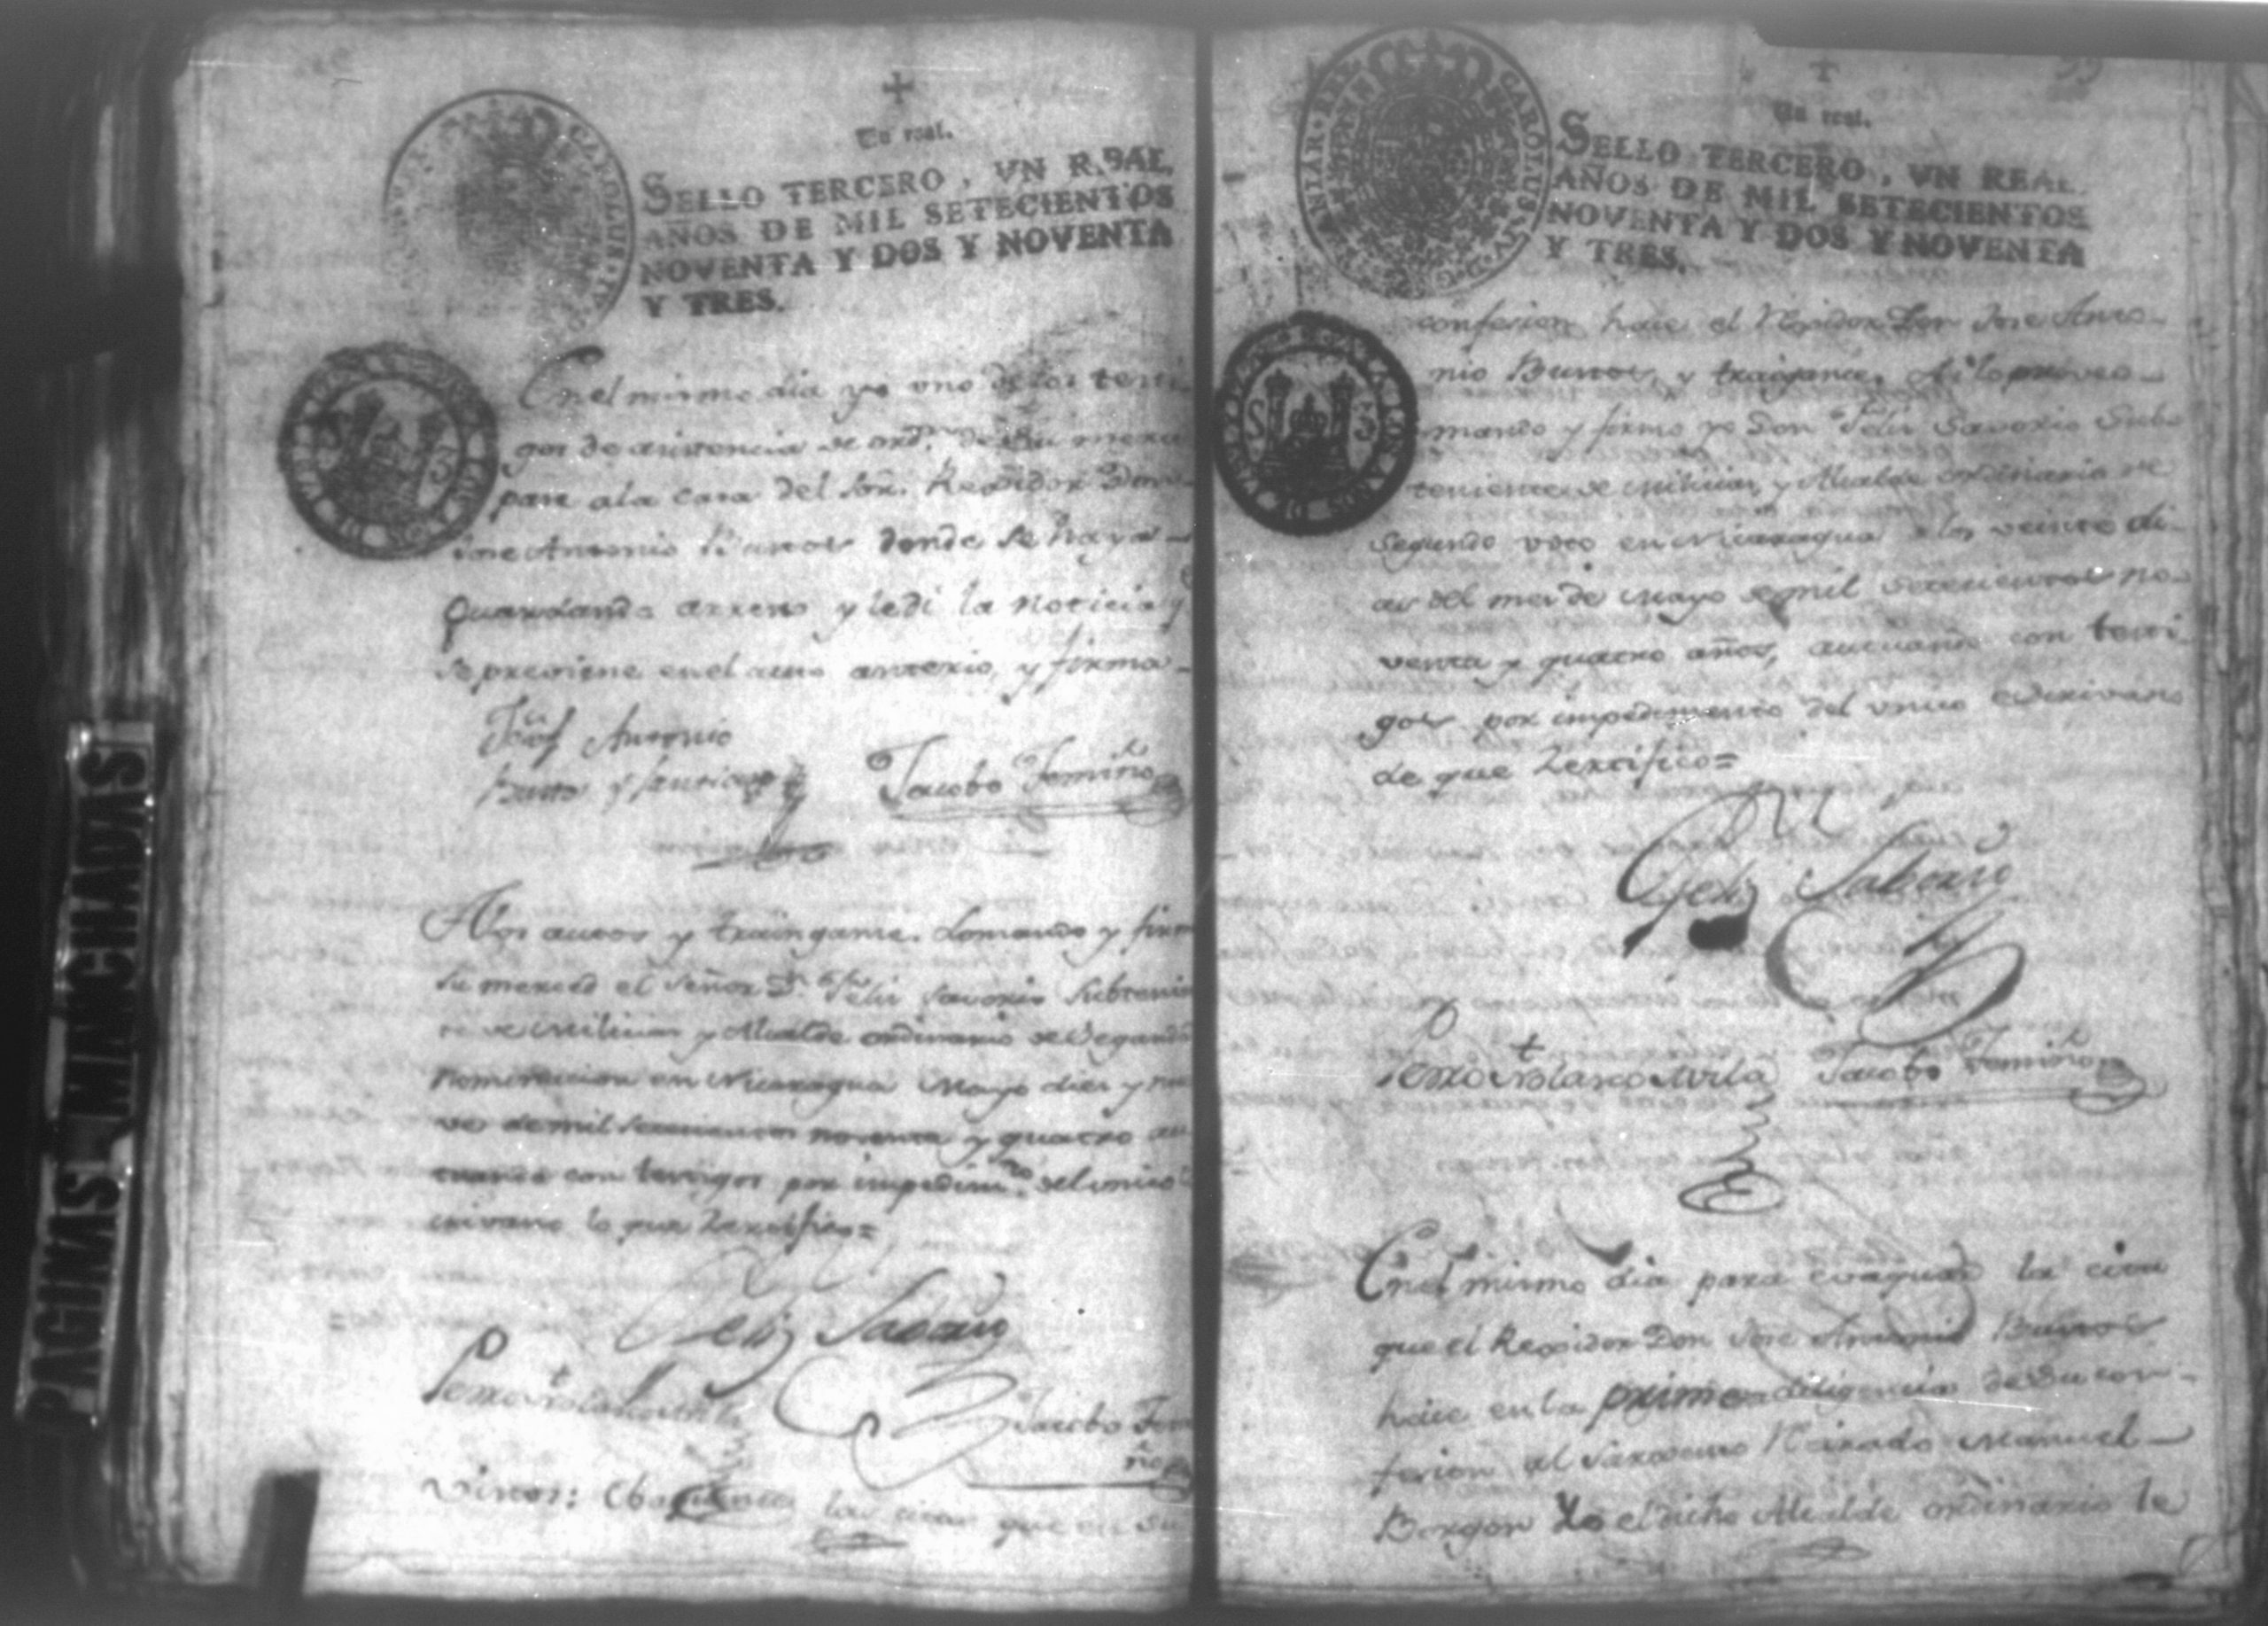 Un real.
SELLO TERCERO, VN REAL,
AÑOS DE MIL SETECIENTOS
NOVENTA Y DOS Y NOVENTA
Y TRES.
En el mismo dia yo uno de los testi
gos de asistencia de ord.n de su merced
pase a la casa del Sor. Regidor Don
Jose Antonio Burtos donde se haya
Guardando arresto y le di la noticia q
se previene en el auto anterior, y firmo
Josef Antonio
Jacobo Temiño
A los autos y traingame. Lo mando y firmo
su merced el Señor D.n Felis Savorio Subtenien
te de Milicias y Alcalde ordinario de Segunda
Nominacion en Nicaragua Mayo dies y nue
ve de mil setecientos noventa y quatro ac
tuando con testigos por impedim.to del unico
crivano lo que Zertifico=
Felis
Pedro Nolasco Avila
Jacobo Temi
ño
Vistos: las citas que en su
Un real.
SELLO TERCERO, VN REAL
AÑOS DE MIL SETECIENTOS
NOVENTA Y DOS Y NOVENTA
Y TRES.
CAROLUS
confesion hace el Regidor Don Jose Anto
nio Burtos y traigance. Asi lo proveo
mando y firmo yo Don Felis Savorio Sub
teniente de Milicias y Alcalde ordinario de
Segundo voto en Nicaragua a los veinte di
as del mes de Mayo de mil setecientos no
venta y quatro años, actuando con testi
gos por impedimento del unico Escrivano
de que Zertifico=
Felis
Pedro Nolasco Avila
Jacobo Temiño
En el mismo dia para evaquar la cita
que el Regidor Don Jose Antonio Burtos
hace en la primera diligencia de su con
fesion al Sargento Manuel
Borgon Yo el dicho Alcalde ordinario le
PAGINAS MANCHADAS